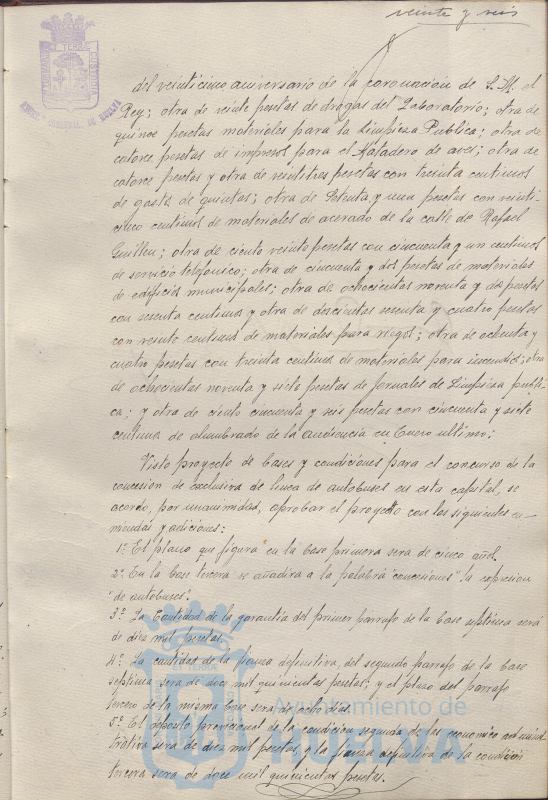 veinte y seis
del veinticinco aniversario de la coronación de S. M. el
Rey; otra de veinte pesetas de drogas del Laboratorio; otra de
quince pesetas materiales para la Limpieza Publica; otra de
catorce pesetas de impresos para el Matadero de aves; otra de
catorce pesetas y otra de veintitres pesetas con treinta centimos
de gastos de quintas; otra de setenta y una pesetas con veinti-
cinco centimos de materiales de acerado de la calle de Rafael
Guillen; otra de ciento veinte pesetas con cincuenta y un centimos
de servicio telefonico; otra de cincuenta y dos pesetas de materiales
de edificios municipales; otra de ochocientas noventa y dos pesetas
con sesenta centimos y otra de doscientas sesenta y cuatro pesetas
con veinte centimos de materiales para riegos; otra de ochenta y
cuatro pesetas con treinta centimos de materiales para incendios; otra
de ochocientas noventa y siete pesetas de jornales de Limpieza públi-
ca; y otra de ciento cincuenta y seis pesetas con cincuenta y siete
centimos de alumbrado de la audiencia en Enero ultimo:
Visto proyecto de bases y condiciones para el concurso de la
concesion de exclusiva de linea de autobuses en esta capital, se
acordo, por unanimidad, aprobar el proyecto con las siguientes en-
miendas y adiciones:
1ª El plazo que figura en la base primera sera de cinco años.
2ª En la base tercera se añadira a la palabra "concesiones" la expresion
"de autobuses".
3ª La cantidad de la garantia del primer parrafo de la base septima será
de diez mil pesetas.
4ª La cantidad de la fianza definitiva, del segundo parrafo de la base
septima sera de doce mil quinientas pesetas; y el plazo del parrafo
tercero de la misma base sera de ocho dias.
5ª El deposito provisional de la condicion segunda de las economico administra-
trativa sera de diez mil pesetas, y la fianza definitiva de la condicion
tercera sera de doce mil quinientas pesetas.
Ayuntamiento de
HUELVA